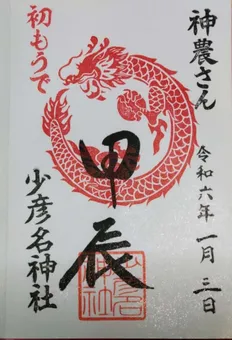 神農さん
令和六年一月三日
甲辰
初もうで
少彦名神社